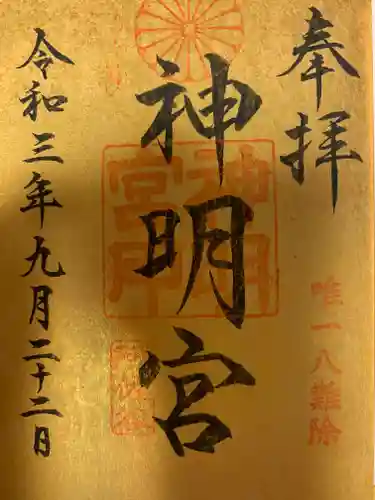 奉拝
唯一八難除
神明宮
神明宮印
令和三年九月二十二日